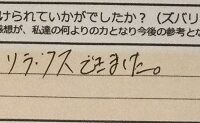 けられていかがでしたか？（ズバリ
感想が、私達の何よりの力となり今後の参考とな
リラックスできました。